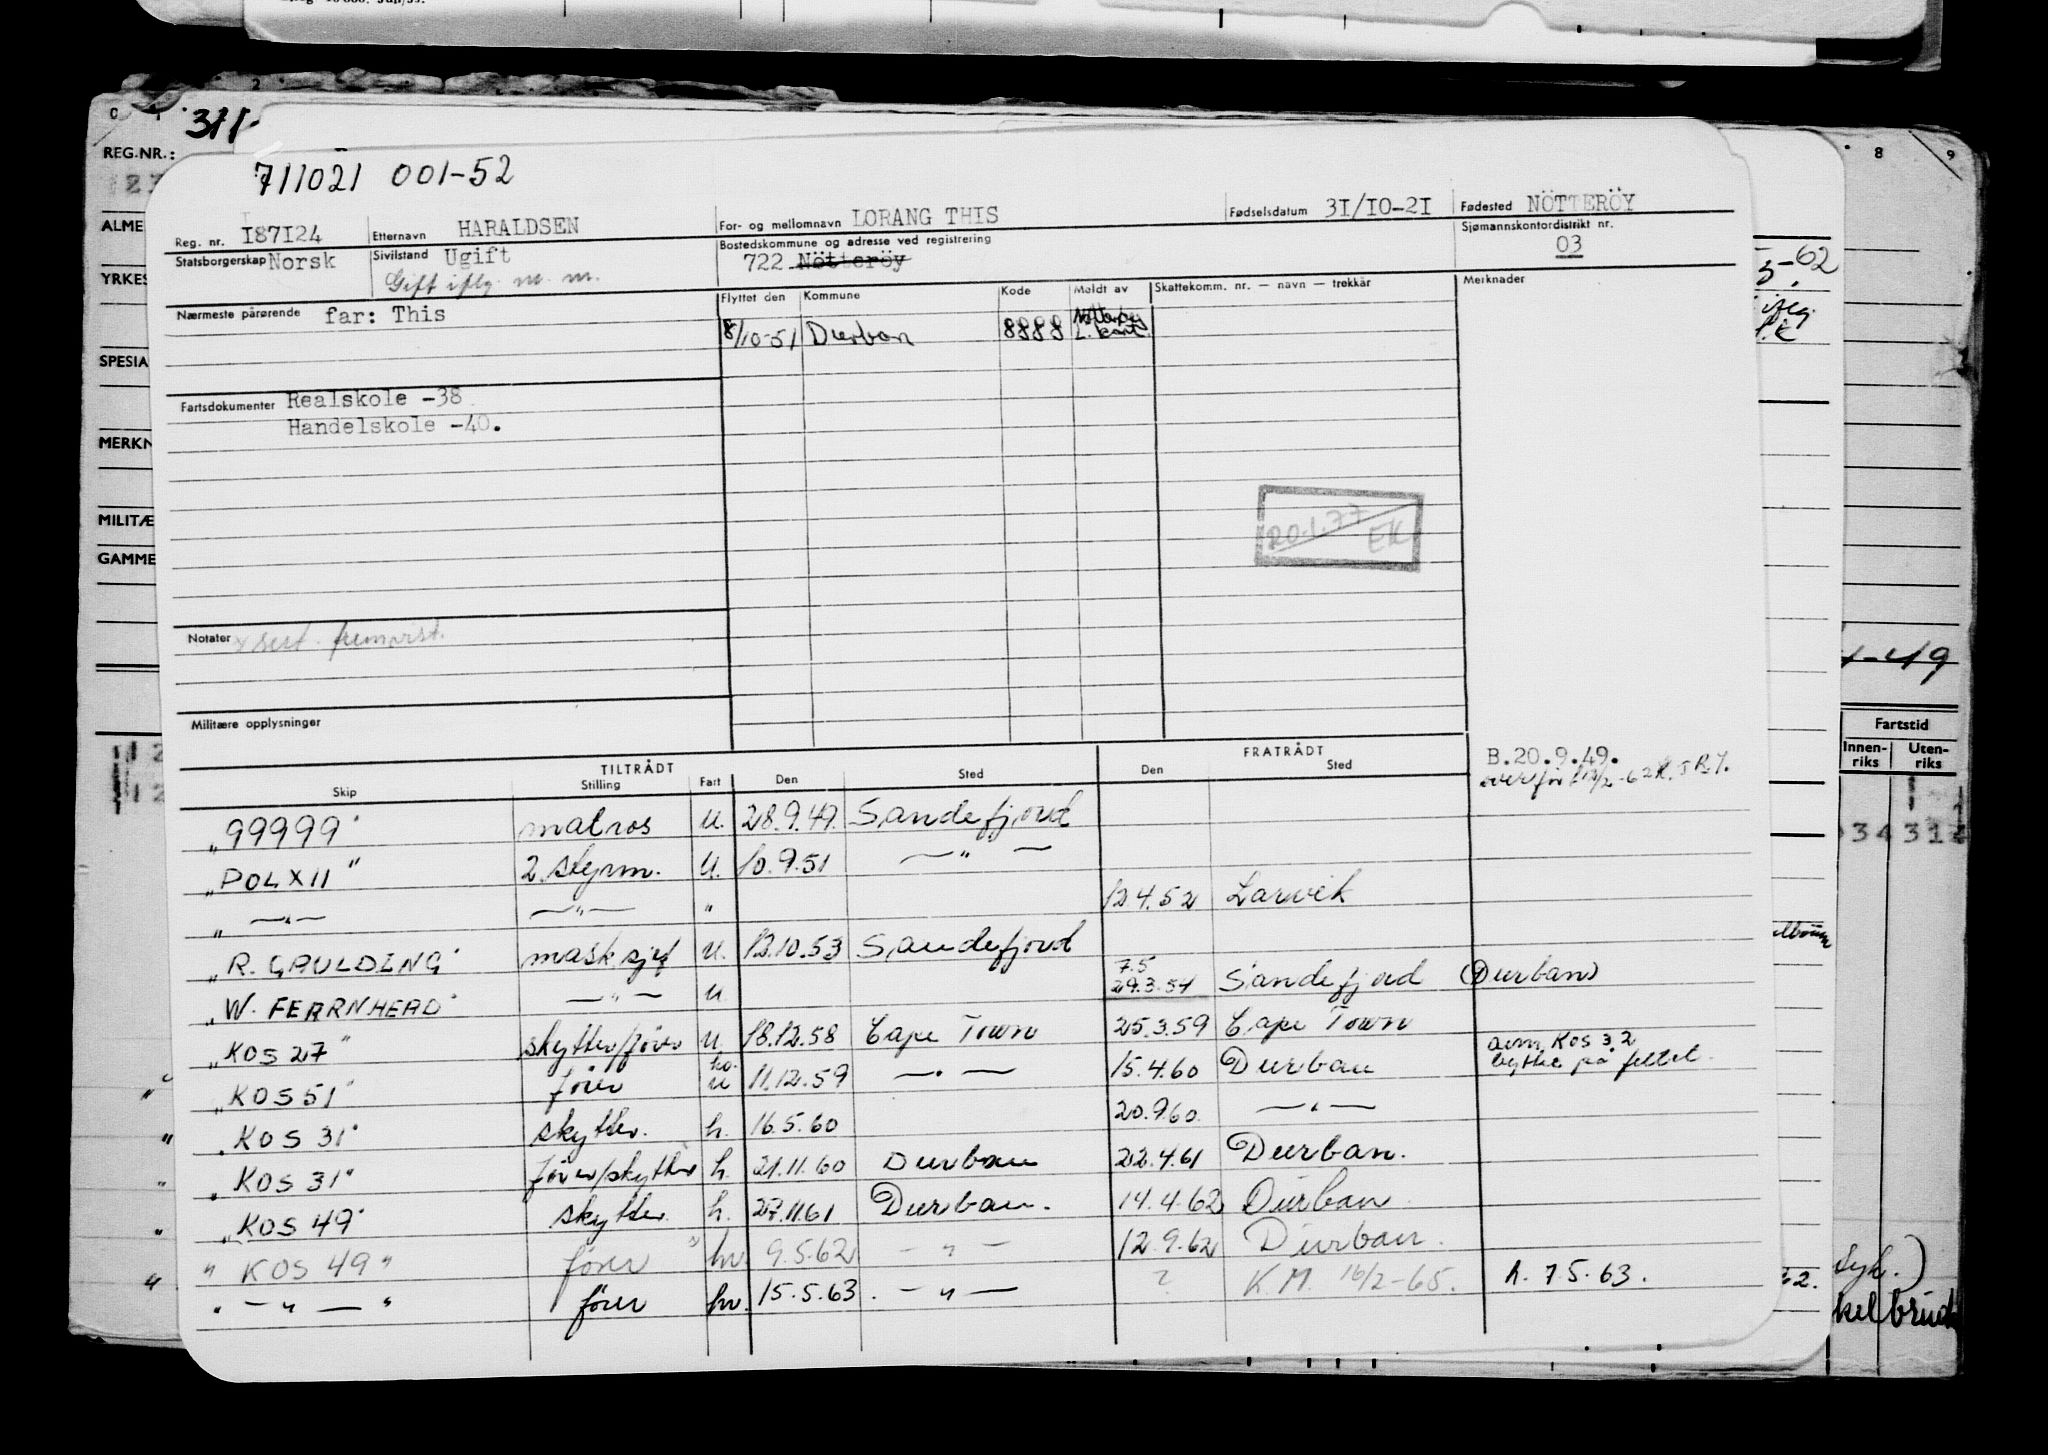 711021 001-52
Reg. nr. I87I24 Etternavn HARALDSEN For- og mellomnavn LORANG THIS Fødselsdatum 3I/IO-2I Fødested NÖTTERÖY
Statsborgerskap Norsk Sivilstand Ugift Bostedskommune og adresse ved registrering Sjømannskontordistrikt nr.
Gift iflg. m. m. 722 Nötteröy 03
Nærmeste pårørende far: This Flyttet den Kommune Kode Meldt av Skattekomm. nr. — navn — trekkår Merknader
8/10-51 Durban 8888
Fartsdokumenter Realskole -38
Handelskole -40.
20.1.77 EK
Notater
Militære opplysninger
TILTRÅDT FRATRÅDT B.20.9.49.
Skip Stilling Fart Den Sted Den Sted
"99999" matros u. 28.9.49. Sandefjord
"POL XII" 2. styrm. u. 10.9.51 —"—
" —"— —"— " 12.4.52 Larvik
"R. GAULDING" mask sjef u. 13.10.53 Sandefjord
"W. FEARNHEAD" —"— u 7.5 29.3.54 Sandefjord (Durban)
"KOS 27" skytter/fører u. 18.12.58 Cape Town 25.3.59 Cape Town
"KOS 51" fører u 11.12.59 —"— 15.4.60 Durban KOS 32 bytte på feltet.
"KOS 31" skytter. h. 16.5.60 20.9.60. —"—
"KOS 31" fører/skytter h. 21.11.60 Durban 22.4.61 Durban.
"KOS 49" skytter h. 27.11.61 Durban. 14.4.62 Durban
"KOS 49" fører " hv. 9.5.62 —"— 12.9.62 Durban.
" —"— " fører hv. 15.5.63. —"— ? K.M. 16/2-65. h. 7.5.63.
REG.NR.:
ALME
YRKES
SPESIA
MERKN
MILITÆ
GAMME
8 9
5-62
-49
Fartstid
Innen-riks Uten-riks
34 312
62.
Syk.)